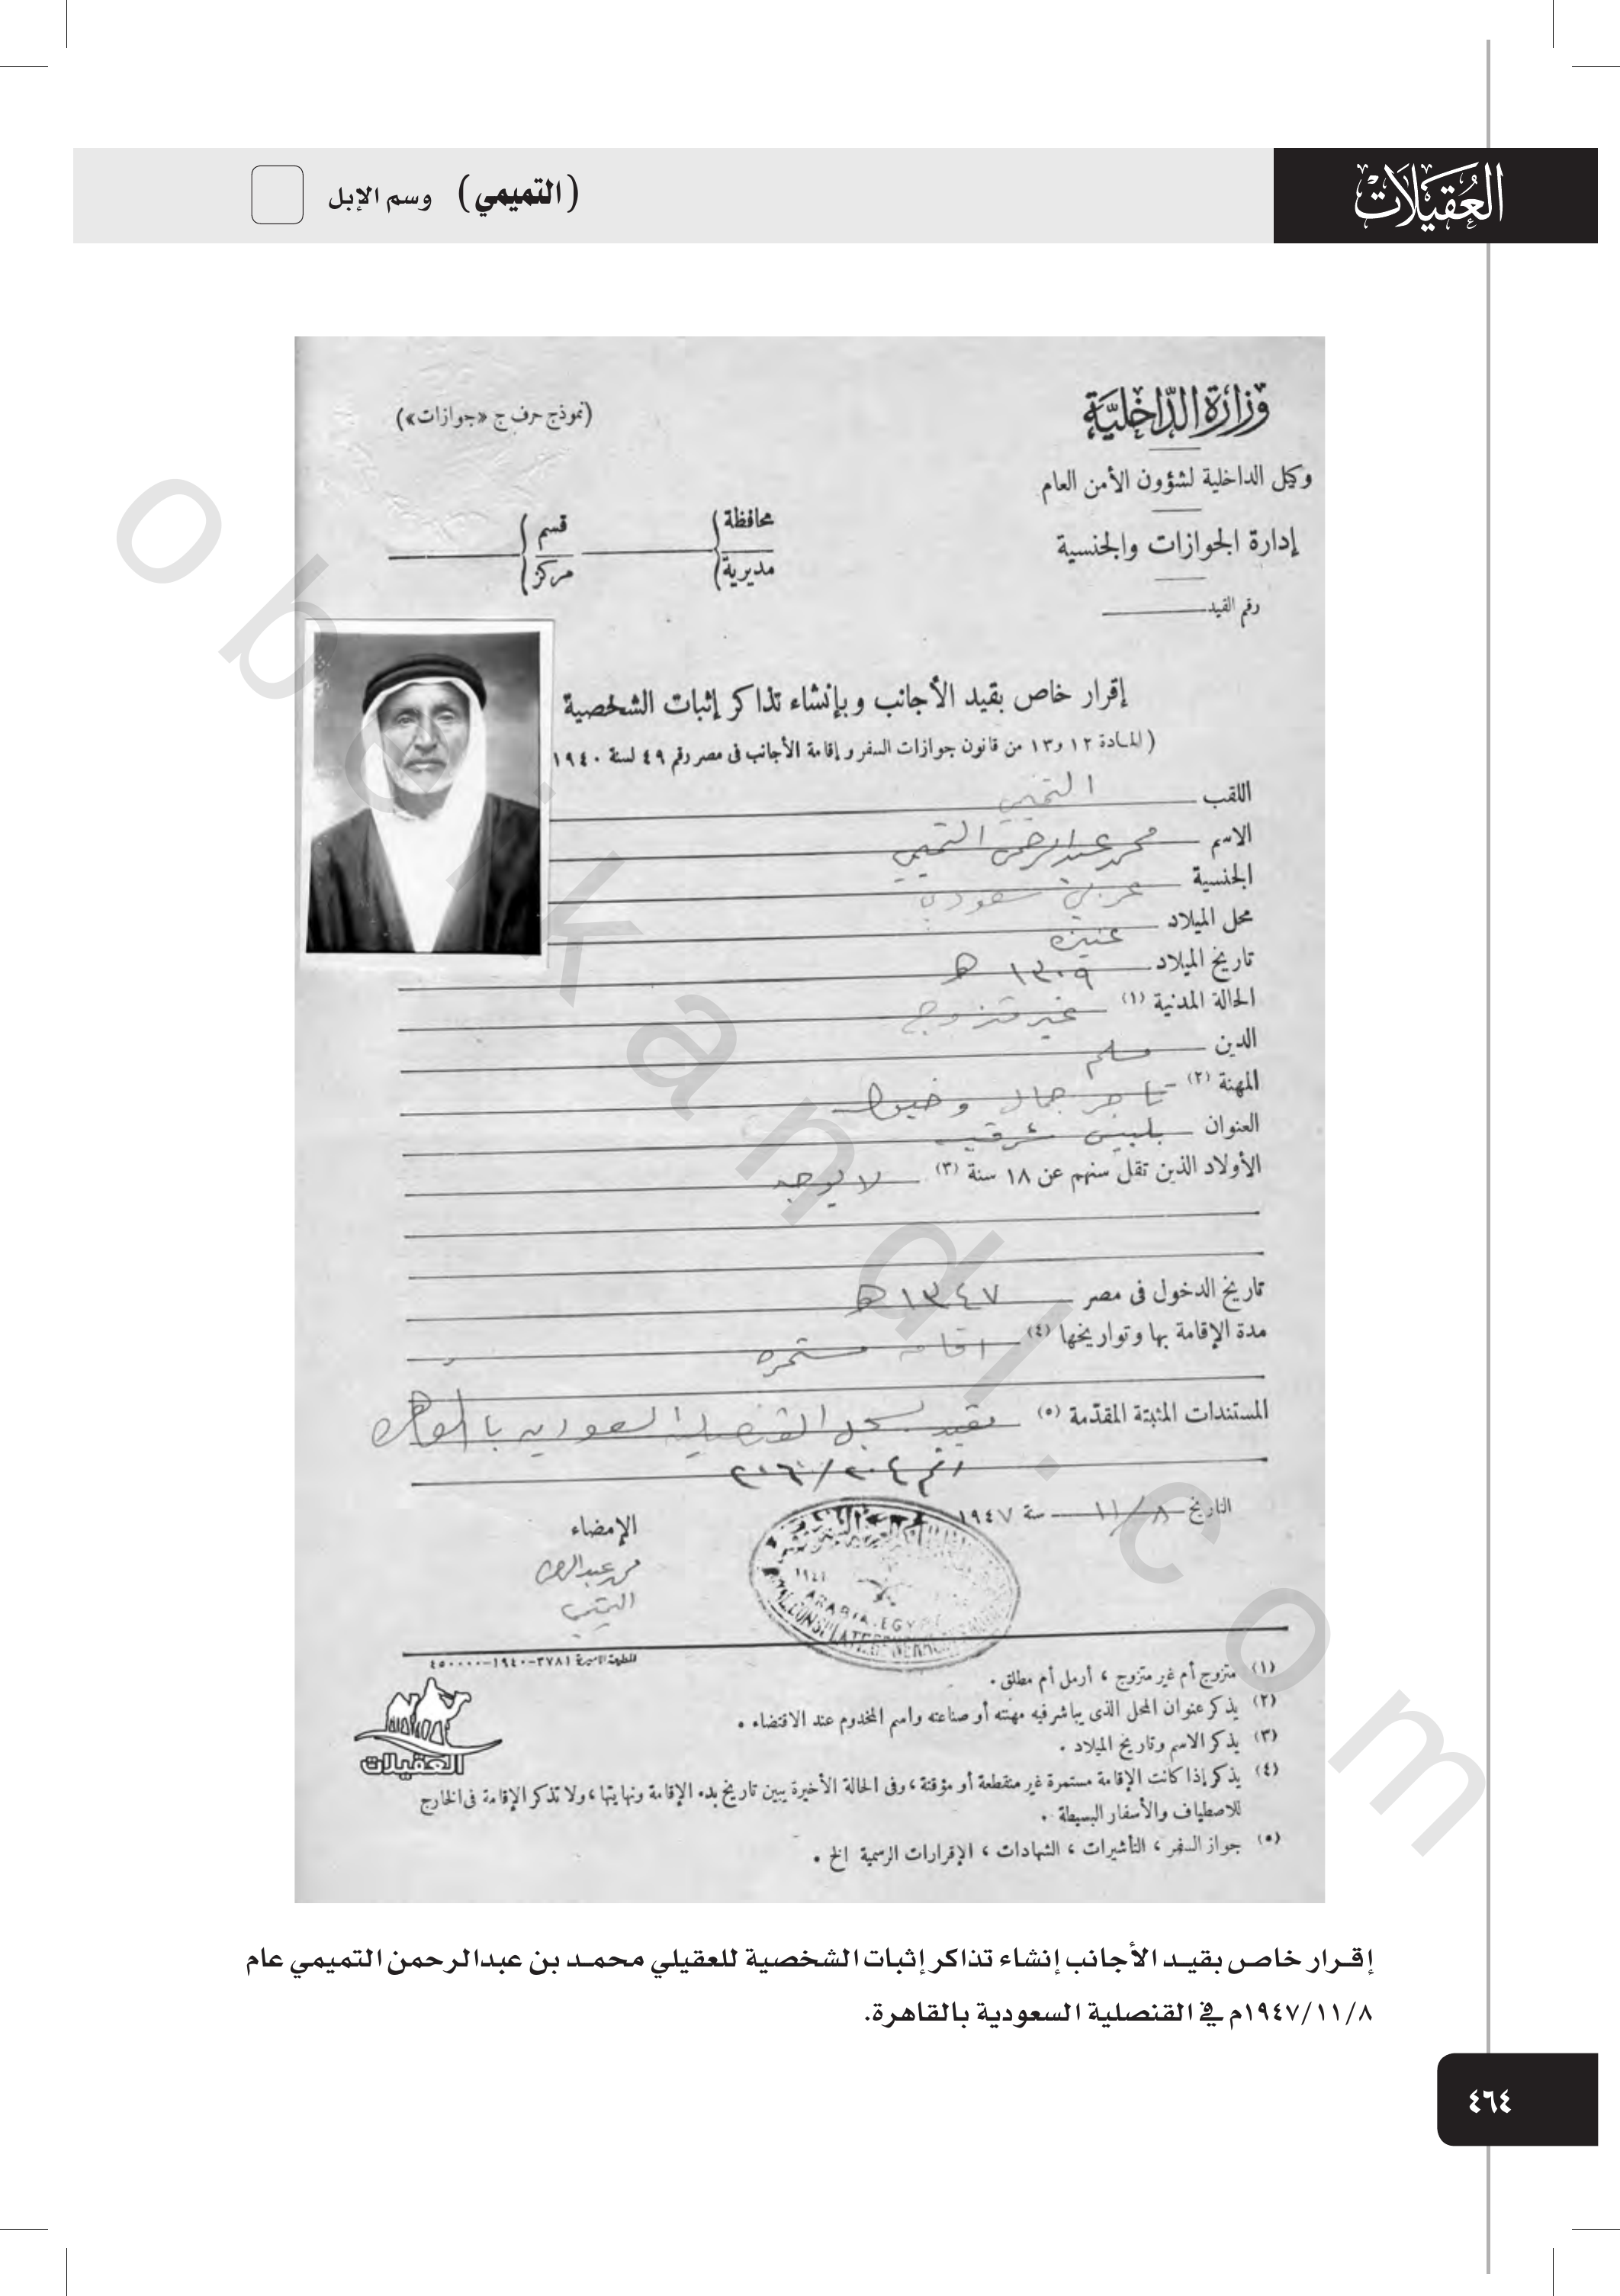 العُقيلات
(التميمي) وسم الإبل
وزارة الداخلية
(نموذج حرف ج «جوازات»)
وكيل الداخلية لشؤون الأمن العام
محافظة
مديرية
قسم
مركز
إدارة الجوازات والجنسية
رقم القيد
إقرار خاص بقيد الأجانب وبإنشاء تذاكر إثبات الشخصية
(المادة ١٢ و١٣ من قانون جوازات السفر وإقامة الأجانب فى مصر رقم ٤٩ لسنة ١٩٤٠
اللقب التميمي
الاسم محمد عبدالرحمن التميمي
الجنسية عربي سعودي
محل الميلاد عنيزه
تاريخ الميلاد ١٣٠٩ هـ
الحالة المدنية (١) غير متزوج
الدين مسلم
المهنة (٢) تاجر جمال وخيول
العنوان بلبيس شرقيه
الأولاد الذين تقل سنهم عن ١٨ سنة (٣) لا يوجد
تاريخ الدخول فى مصر ١٣٤٧ هـ
مدة الإقامة بها وتواريخها (٤) اقامه مستمره
المستندات المثبتة المقدمة (٥) مقيد بسجل القنصليه السعوديه بالقاهره
رقم ٢٠٦/٢٠٤
التاريخ ١١/٨ سنة ١٩٤٧
الإمضاء
محمد عبدالرحمن
التميمي
ARABIA. EGYPT
المطبعة الاميرية ٣٧٨١-١٩٤٠-٤٥٠٠٠٠
(١) متزوج أم غير متزوج ، أرمل أم مطلق .
(٢) يذكر عنوان المحل الذى يباشر فيه مهنته أو صناعته واسم المخدوم عند الاقتضاء .
(٣) يذكر الاسم وتاريخ الميلاد .
(٤) يذكر إذا كانت الإقامة مستمرة غير منقطعة أو مؤقتة ، وفى الحالة الأخيرة يبين تاريخ بدء الإقامة ونهايتها ، ولا تذكر الإقامة فى الخارج
للاصطياف والأسفار البسيطة .
(٥) جواز السفر ، التأشيرات ، الشهادات ، الإقرارات الرسمية الخ .
العقيلات
إقرار خاص بقيد الأجانب إنشاء تذاكر إثبات الشخصية للعقيلي محمد بن عبدالرحمن التميمي عام
١٩٤٧/١١/٨م في القنصلية السعودية بالقاهرة.
٤٦٤
obeikandl.com